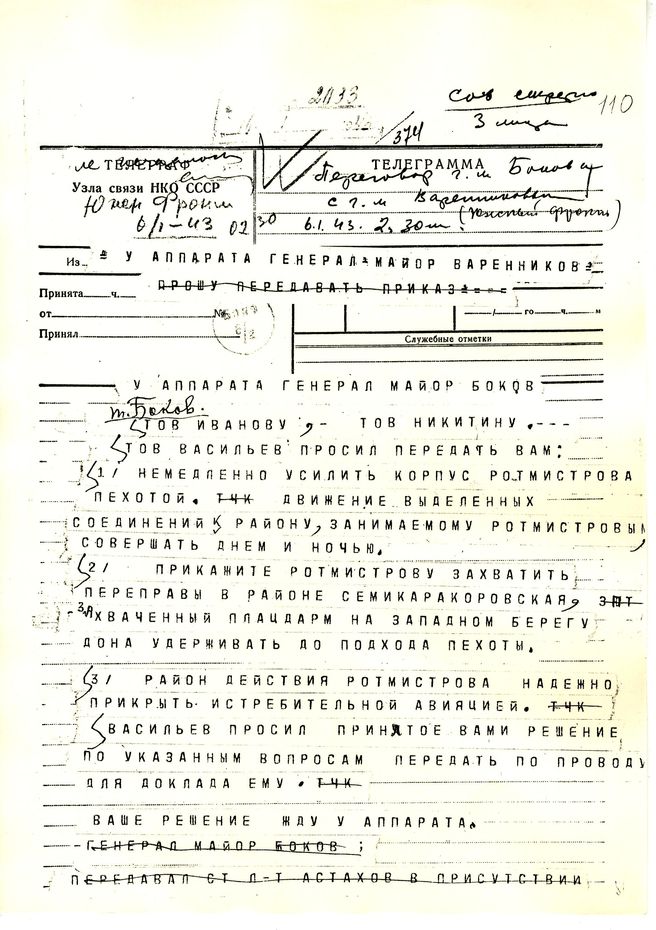 2033
Сов секретно 110
374 3 лица
ТЕЛЕГРАФ ТЕЛЕГРАММА
Узла связи НКО СССР Переговор г. м Бокова
Южн Фронт с г. м Варенникова
6/I-43 02 30 6.1.43. 2.30м. (Южный фронт)
Из У АППАРАТА ГЕНЕРАЛ-МАЙОР ВАРЕННИКОВ=
ПРОШУ ПЕРЕДАВАТЬ ПРИКАЗ====
Принята ч.
от № / го ч. м
Принял Служебные отметки
У АППАРАТА ГЕНЕРАЛ МАЙОР БОКОВ
т. Боков.
ТОВ ИВАНОВУ ,- ТОВ НИКИТИНУ .---
ТОВ ВАСИЛЬЕВ ПРОСИЛ ПЕРЕДАТЬ ВАМ:
1/ НЕМЕДЛЕННО УСИЛИТЬ КОРПУС РОТМИСТРОВА
ПЕХОТОЙ. ТЧК ДВИЖЕНИЕ ВЫДЕЛЕННЫХ
СОЕДИНЕНИЙ К РАЙОНУ, ЗАНИМАЕМОМУ РОТМИСТРОВЫМ,
СОВЕРШАТЬ ДНЕМ И НОЧЬЮ.
2/ ПРИКАЖИТЕ РОТМИСТРОВУ ЗАХВАТИТЬ
ПЕРЕПРАВЫ В РАЙОНЕ СЕМИКАРАКОРОВСКАЯ, ЗПТ
ЗАХВАЧЕННЫЙ ПЛАЦДАРМ НА ЗАПАДНОМ БЕРЕГУ
ДОНА УДЕРЖИВАТЬ ДО ПОДХОДА ПЕХОТЫ.
3/ РАЙОН ДЕЙСТВИЯ РОТМИСТРОВА НАДЕЖНО
ПРИКРЫТЬ ИСТРЕБИТЕЛЬНОЙ АВИЯЦИЕЙ. ТЧК
ВАСИЛЬЕВ ПРОСИЛ ПРИНЯТОЕ ВАМИ РЕШЕНИЕ
ПО УКАЗАННЫМ ВОПРОСАМ ПЕРЕДАТЬ ПО ПРОВОДУ
ДЛЯ ДОКЛАДА ЕМУ . ТЧК
ВАШЕ РЕШЕНИЕ ЖДУ У АППАРАТА.
-ГЕНЕРАЛ МАЙОР БОКОВ ;
ПЕРЕДАВАЛ СТ Л-Т АСТАХОВ В ПРИСУТСТВИИ